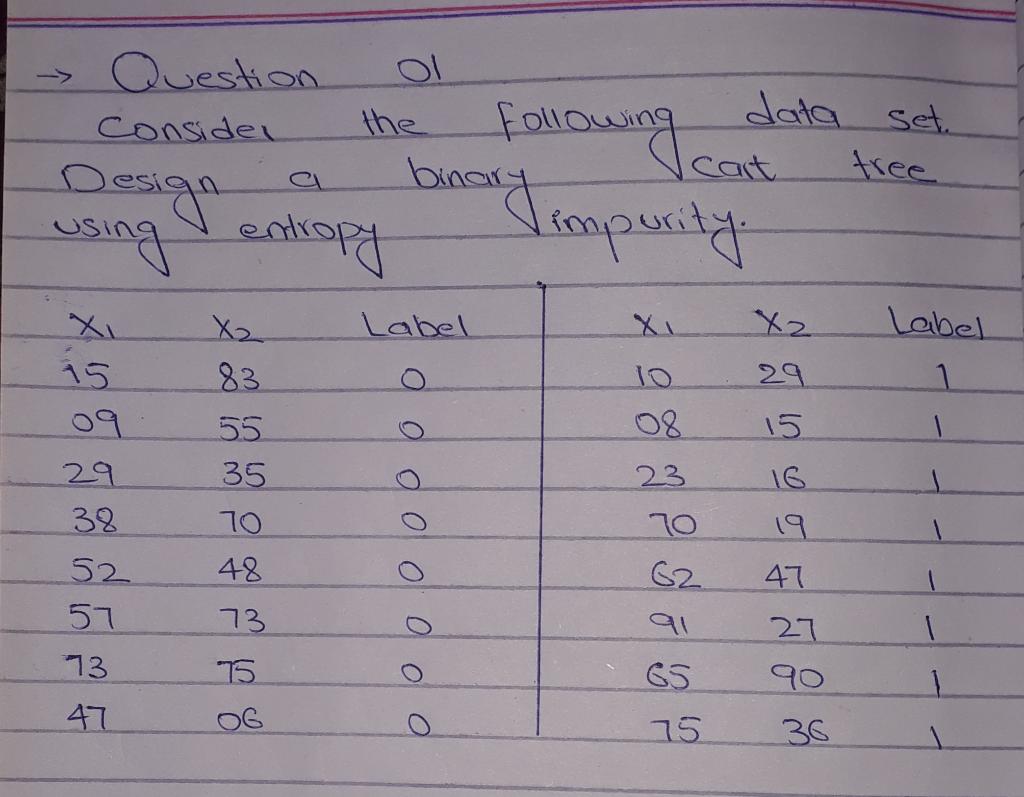 → Question 01
Consider the following data set.
Design a binary cart tree
using entropy impurity.
X1 X2 Label X1 X2 Label
15 83 0 10 29 1
09 55 0 08 15 1
29 35 0 23 16 1
38 70 0 70 19 1
52 48 0 62 47 1
57 73 0 91 27 1
73 75 0 65 90 1
47 06 0 75 36 1